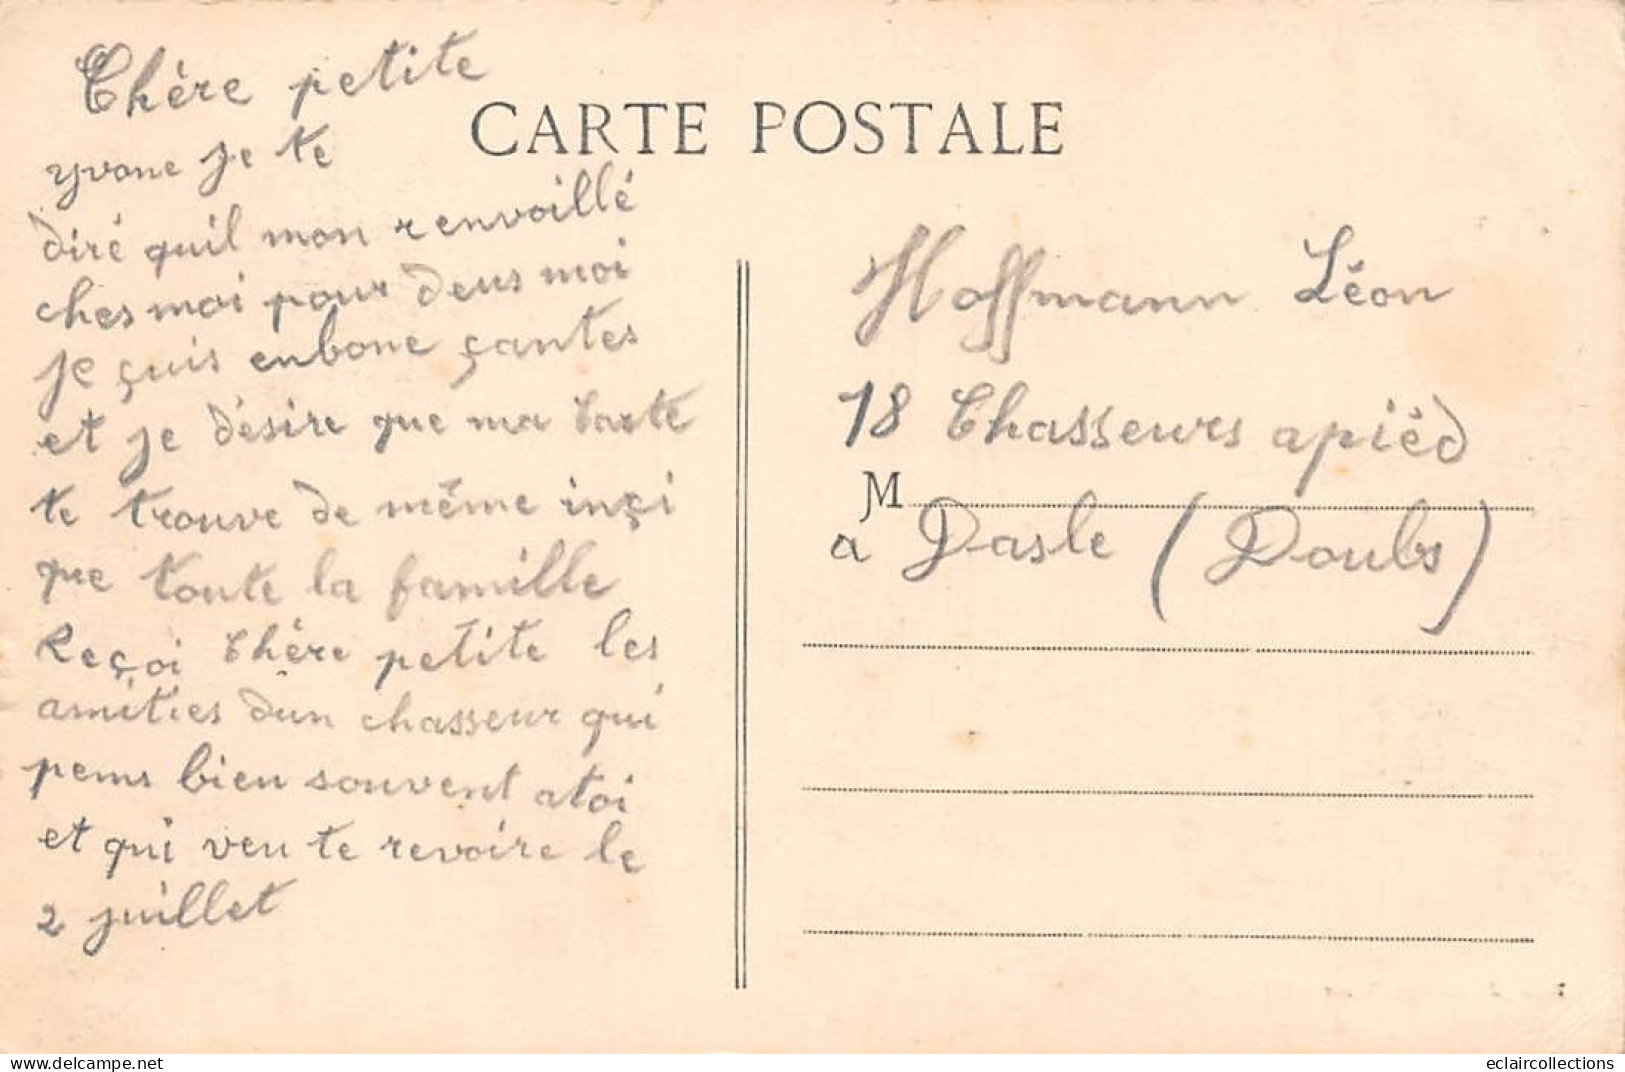 Chère petite
yvone je te
diré quil mon renvoillé
ches moi pour deus moi
je çuis enbone çantes
et je désire que ma Carte
te trouve de même inçi
que toute la famille
Reçoi Chère petite les
amities dun chasseur qui
pens bien souvent atoi
et qui veu te revoire le
2 juillet
CARTE POSTALE
Hoffmann Léon
18 Chasseurs apiéd
M
a Dasle (Doubs)
eclaircollections